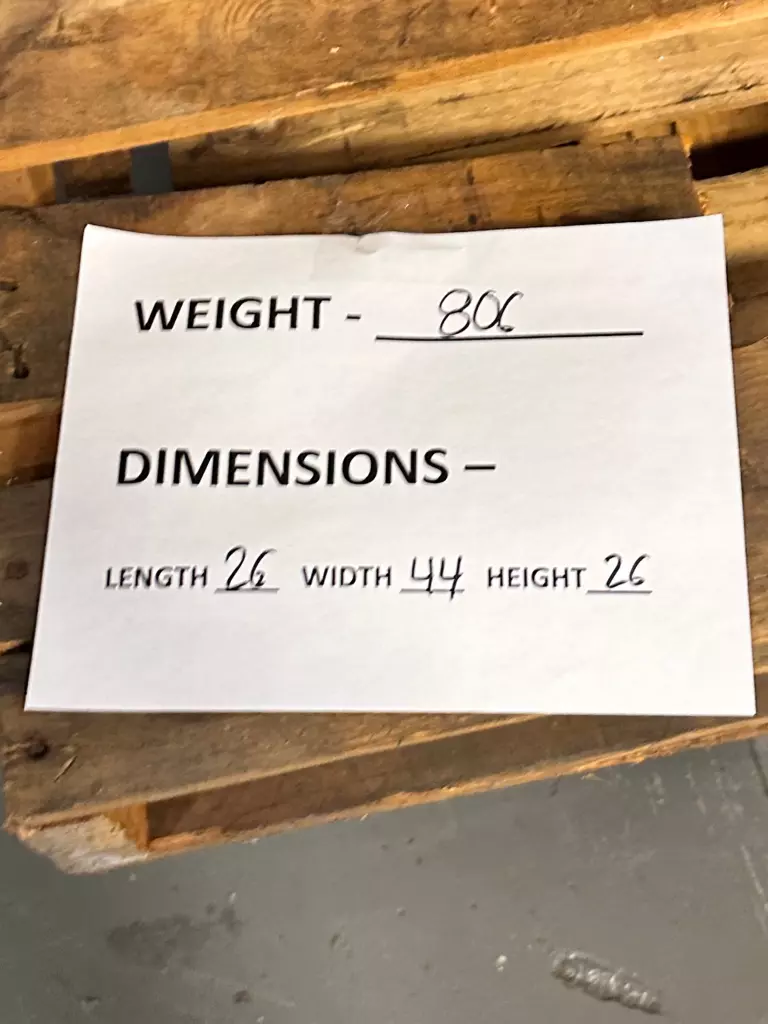 WEIGHT - 806
DIMENSIONS –
LENGTH 26 WIDTH 44 HEIGHT 26